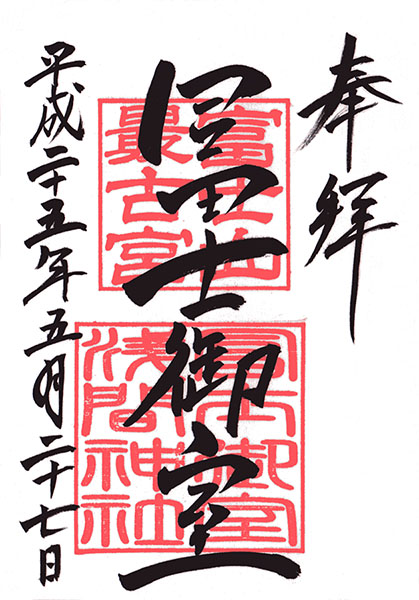 奉拝
冨士御室
富士山
最古宮
冨士御室
浅間神社
平成二十五年五月二十七日